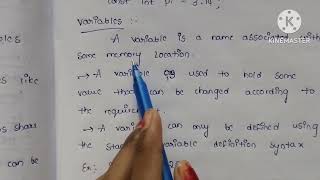 const int pi = 3.14;
Variables :-
A variable is a name associated with
some memory location.
→ A variable is used to hold some
value that can be changed according to
the requirement
→ A variable can only be defined using
the variable definition syntax
Ex:
like
can be
KINEMASTER